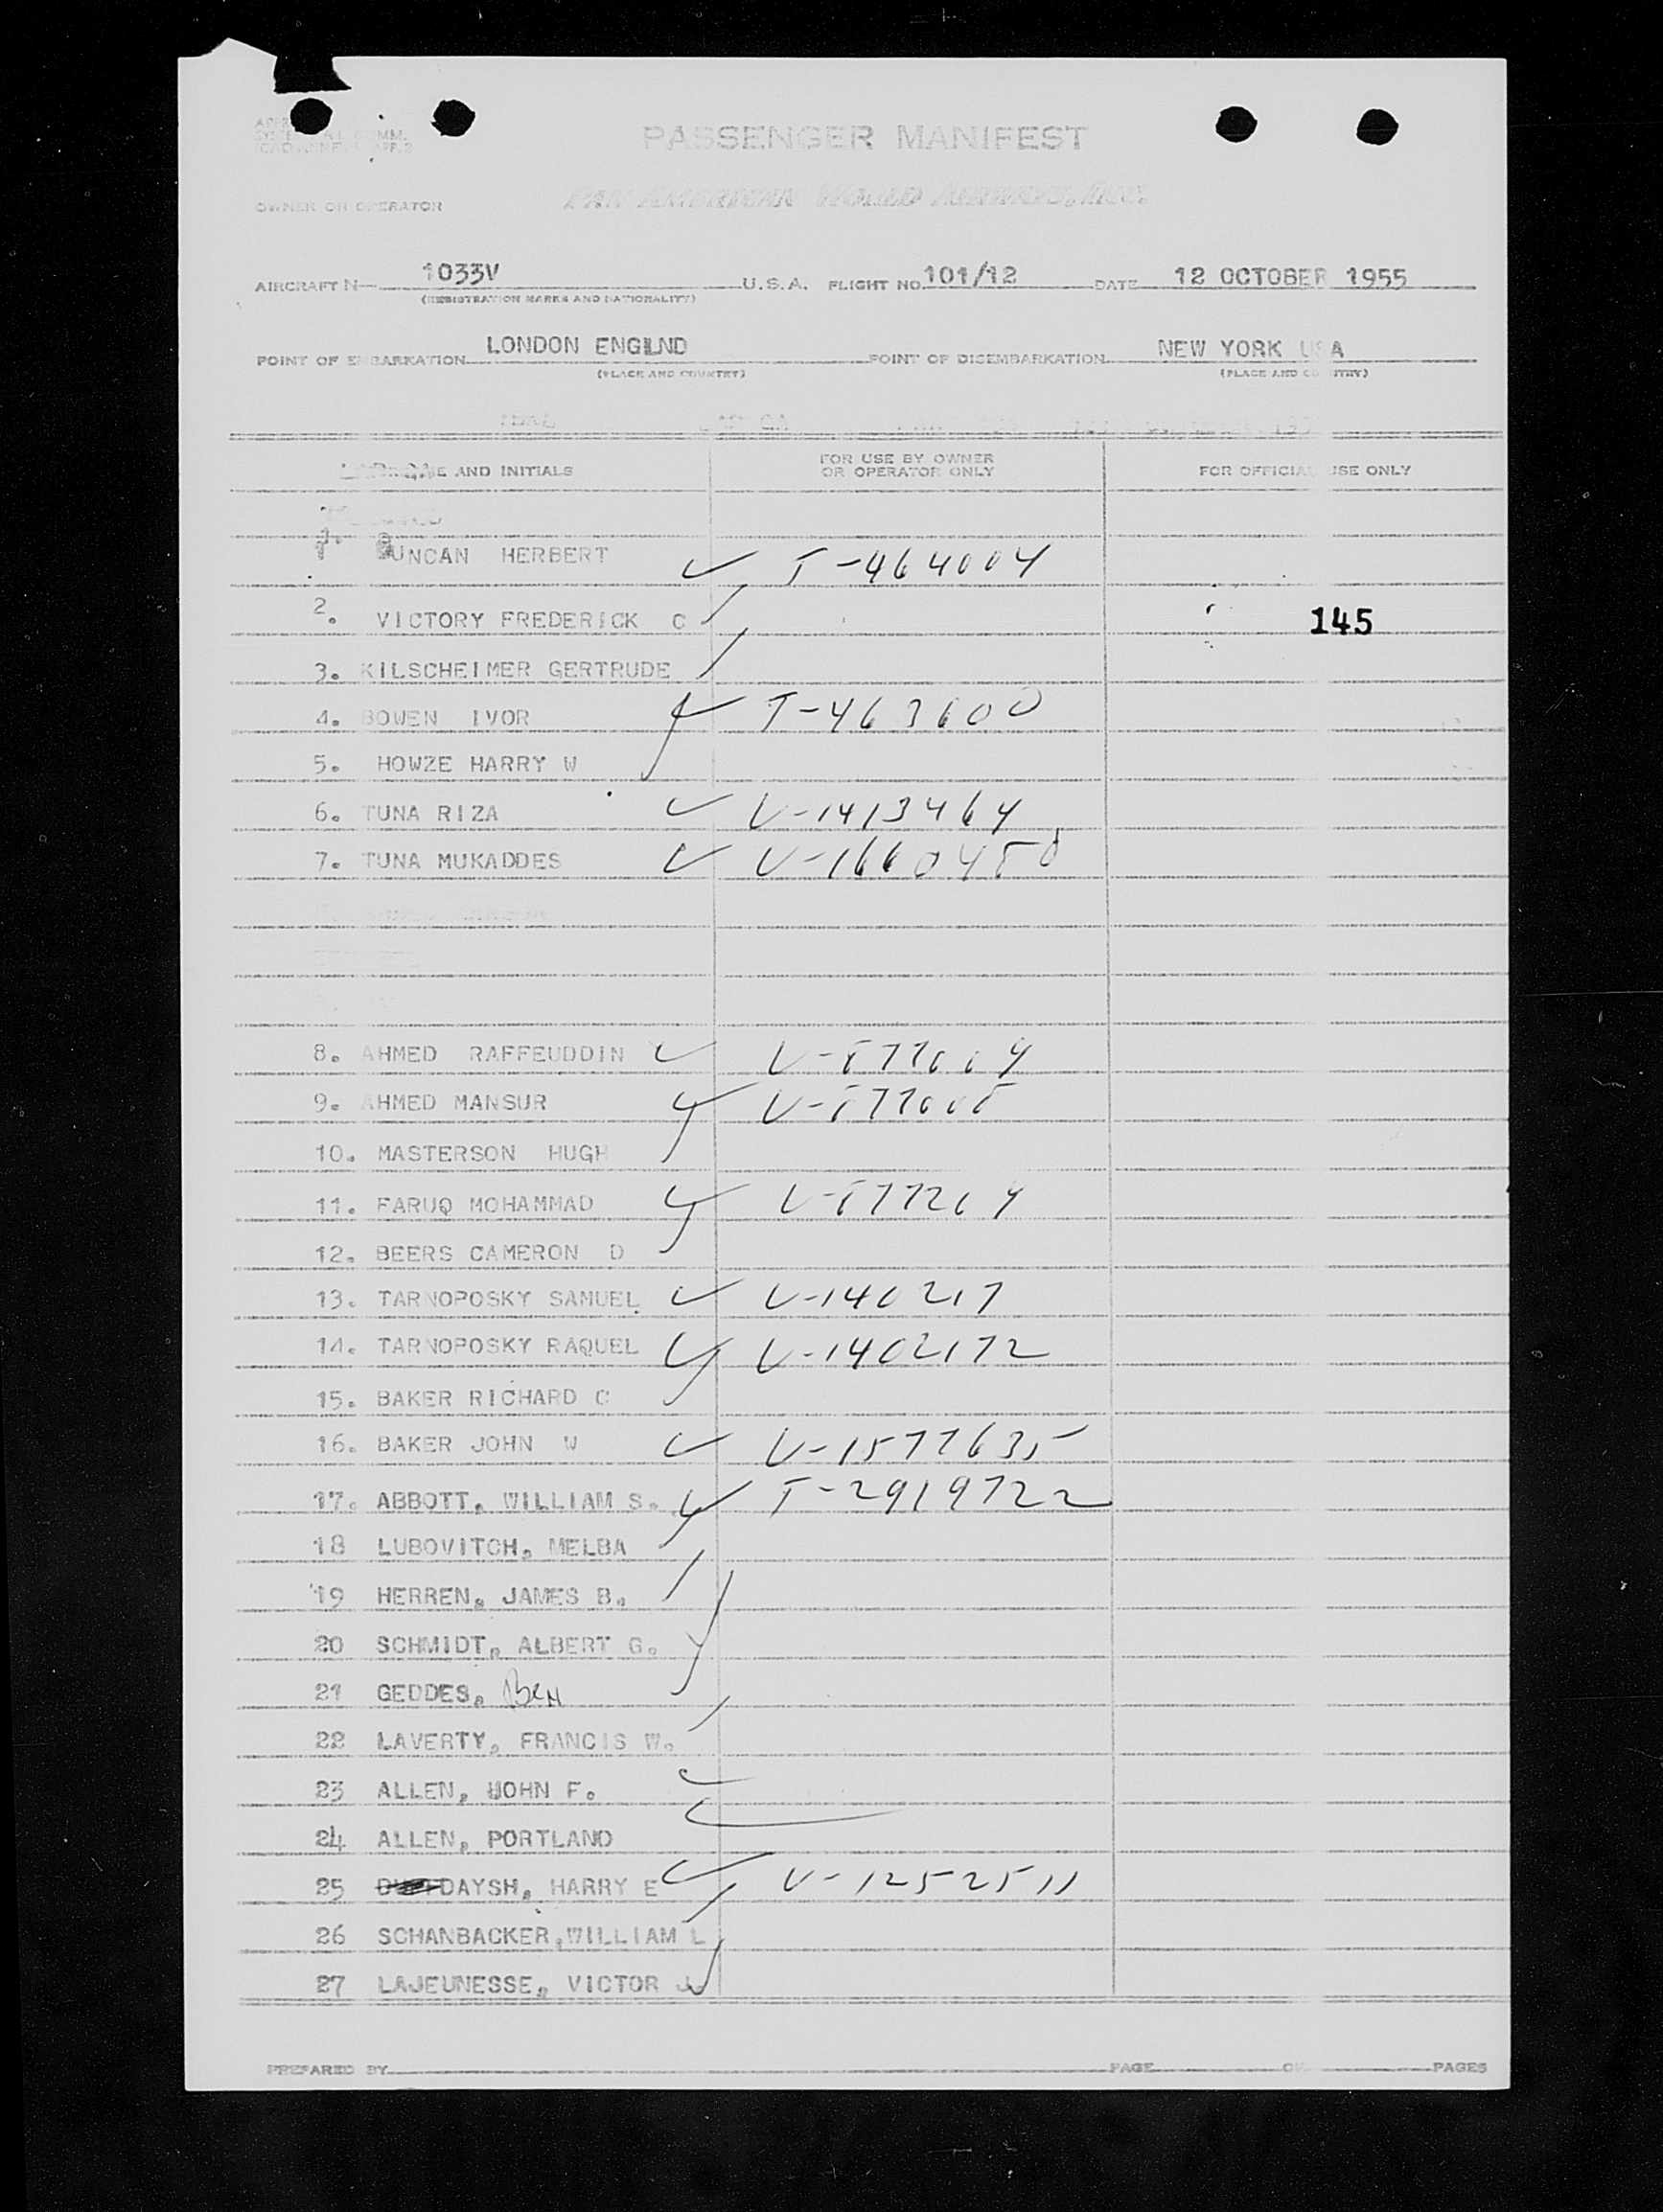 PASSENGER MANIFEST
OWNER OR OPERATOR PAN AMERICAN WORLD AIRWAYS, INC.
AIRCRAFT N— 1033V U.S.A. FLIGHT NO. 101/12 DATE 12 OCTOBER 1955
(REGISTRATION MARKS AND NATIONALITY)
POINT OF EMBARKATION LONDON ENGLND POINT OF DISEMBARKATION NEW YORK USA
(PLACE AND COUNTRY) (PLACE AND COUNTRY)
AND INITIALS FOR USE BY OWNER OR OPERATOR ONLY FOR OFFICIAL USE ONLY
DUNCAN HERBERT T-464004
2. VICTORY FREDERICK C 145
3. KILSCHEIMER GERTRUDE
4. BOWEN IVOR T-463600
5. HOWZE HARRY W
6. TUNA RIZA V-1413464
7. TUNA MUKADDES
8. AHMED RAFFEUDDIN
9. AHMED MANSUR
10. MASTERSON HUGH
11. FARUQ MOHAMMAD
12. BEERS CAMERON D
13. TARNOPOSKY SAMUEL V-140217
14. TARNOPOSKY RAQUEL V-1402172
15. BAKER RICHARD C
16. BAKER JOHN W V-1577635
17. ABBOTT, WILLIAM S. T-2919722
18 LUBOVITCH, MELBA
19 HERREN, JAMES B.
20 SCHMIDT, ALBERT G.
21 GEDDES, Ben
22 LAVERTY, FRANCIS W.
23 ALLEN, JOHN F.
24 ALLEN, PORTLAND
25 DAYSH, HARRY E V-1252511
26 SCHANBACKER, WILLIAM L
27 LAJEUNESSE, VICTOR J
PREPARED BY PAGE OF PAGES